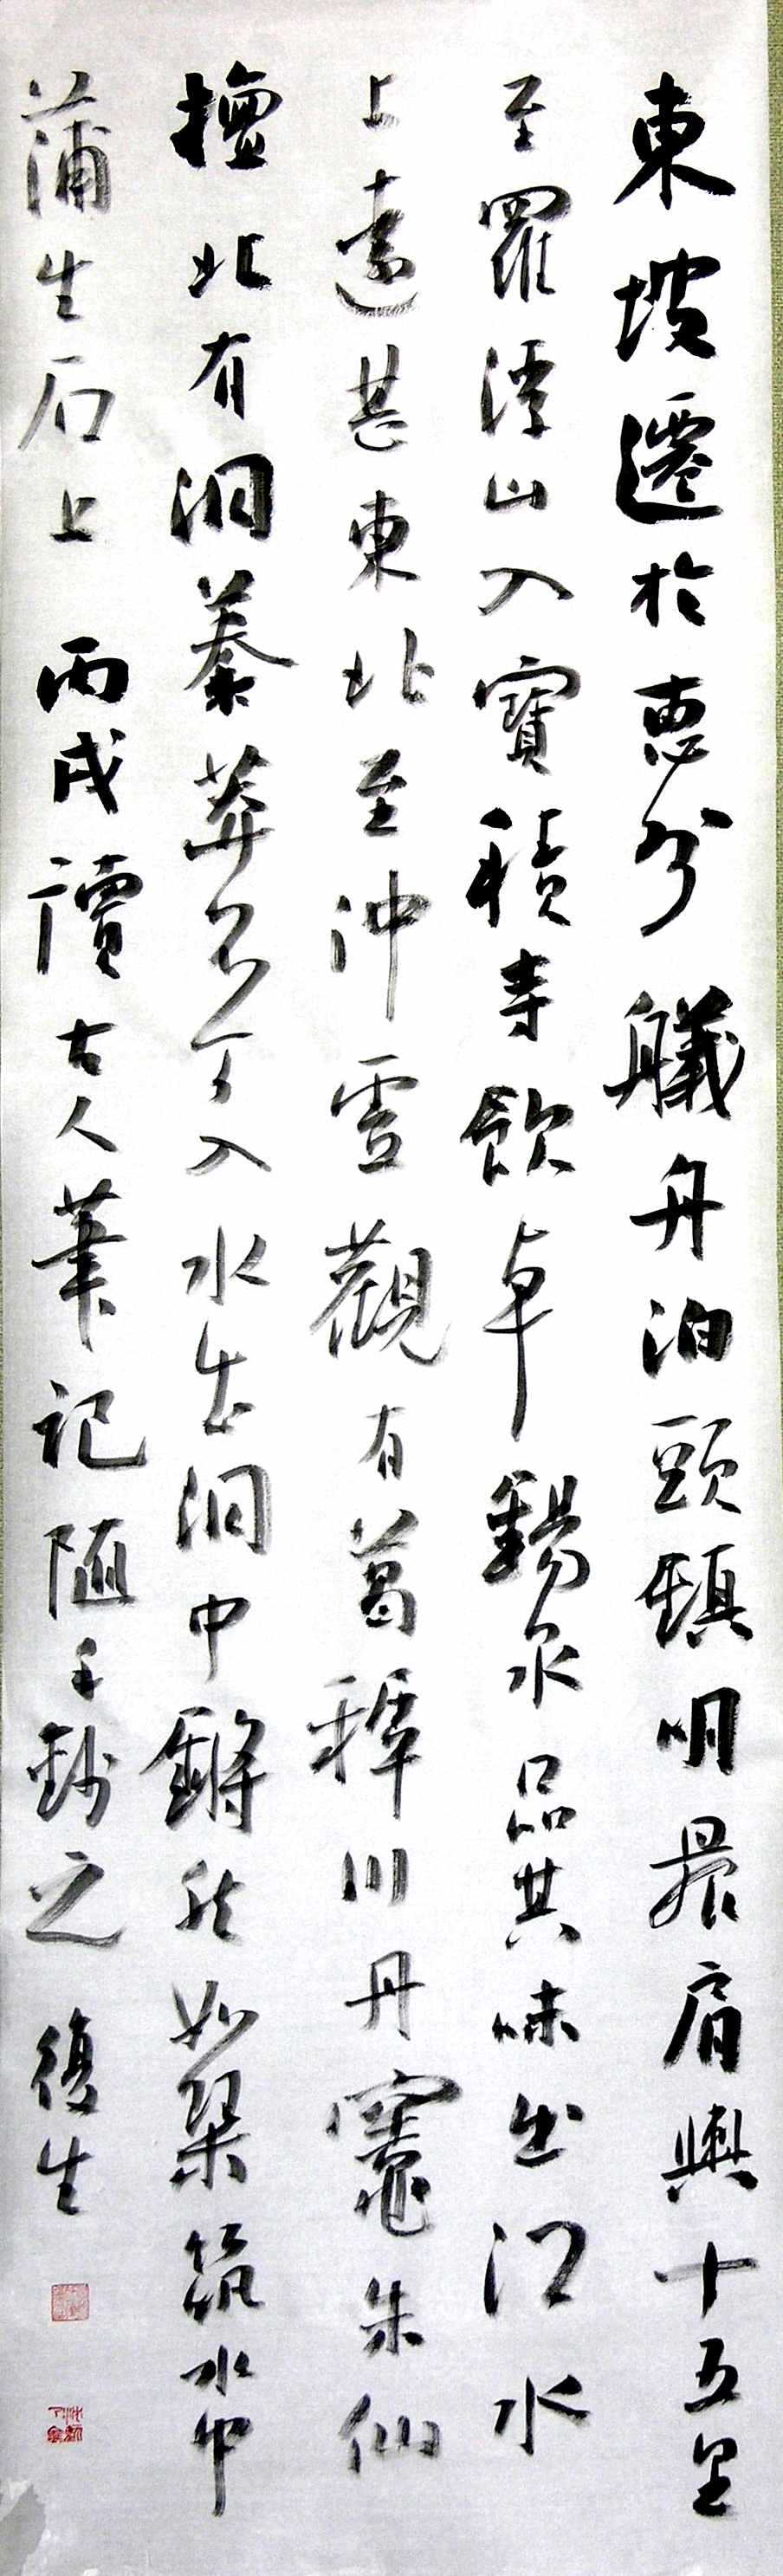 東坡遷於惠州艤舟泊頭鎮明晨肩輿十五里
至羅浮山入寶積寺飲卓錫泉品其味出江水
上遠甚東北至沖虛觀有葛稚川丹竈朱仙
壇北有洞榛莽不可入水出洞中鏘然如琴筑水中
蒲生石上 丙戌讀古人筆記隨手鈔之 復生